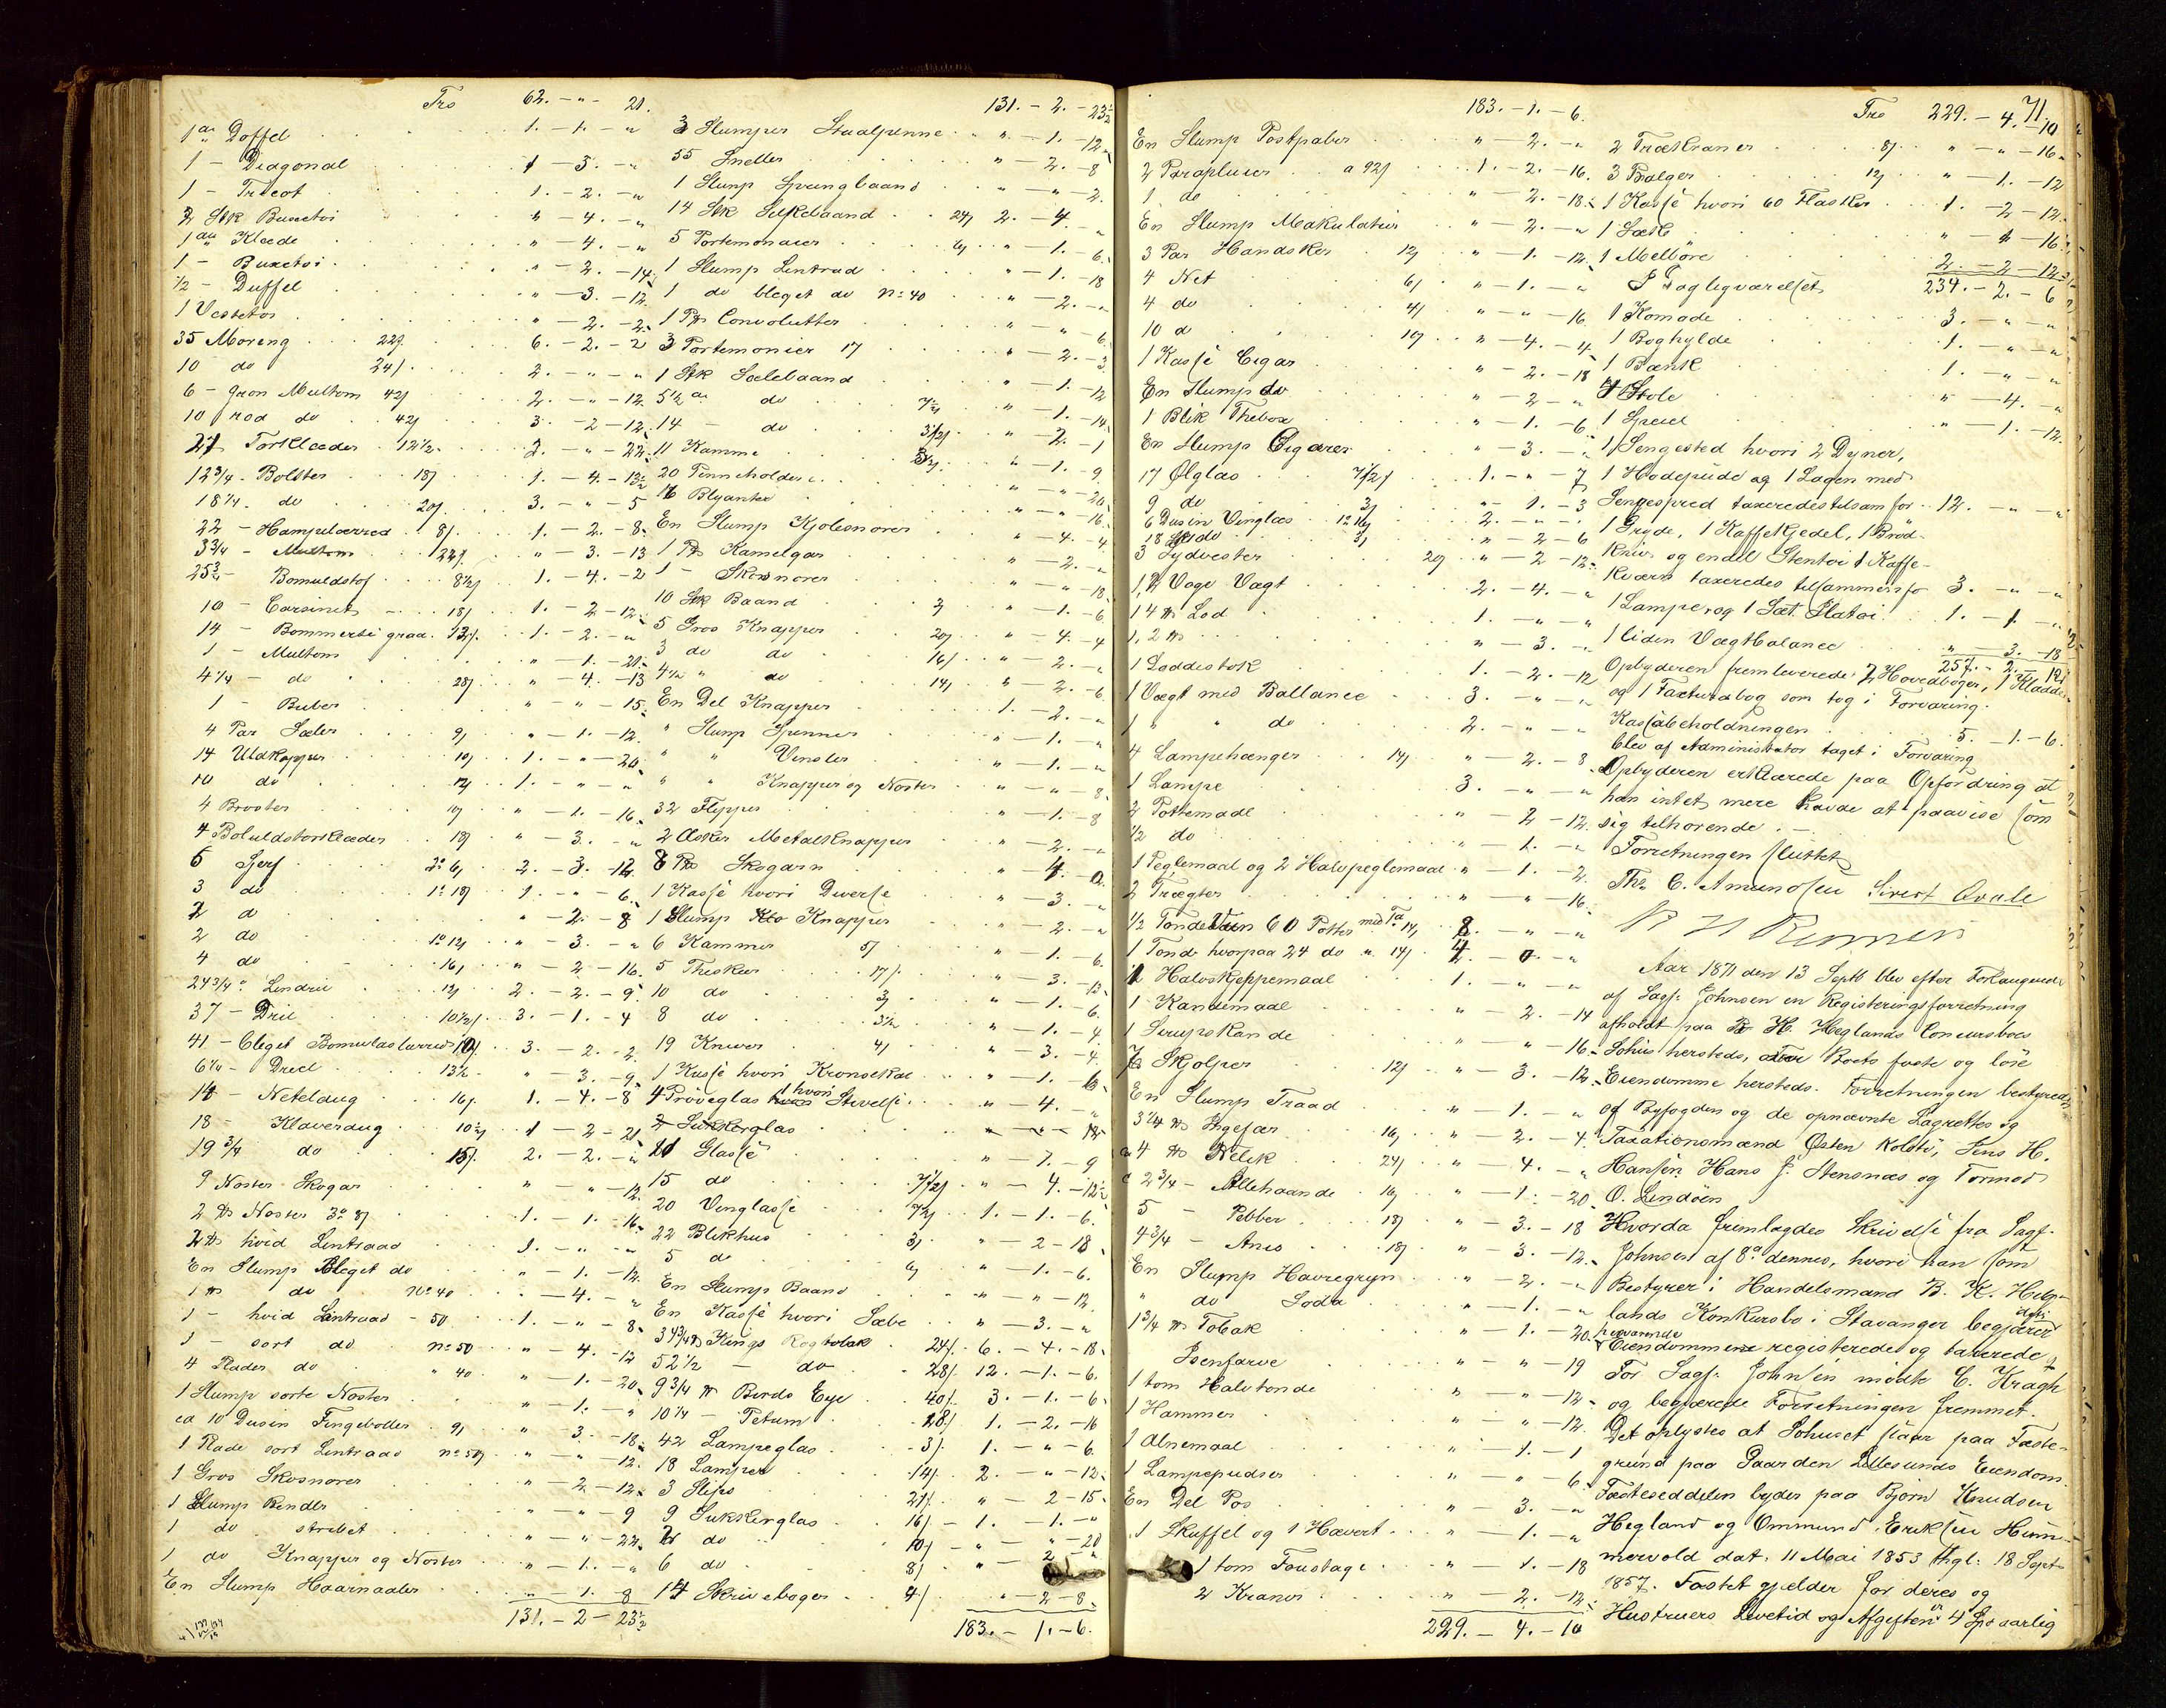 Tro 62. - " - 21.
1 al Doffel 1. - 1. - "
1 - Diagonal 1 - 3. - "
1 - Tricot 1. - 2. - "
2 Stk Buxetøi " - 4. - "
1 al Klæde " - 4. - "
1 - Buxetøi " - 2. - 14.
1/2 - Duffel " - 3. - 12.
1 Vestetøi " - 2. - 2.
35 Moreng 22/ 6. - 2. - 2
10 do 24/ 2. - " - "
6 - grøn Multom 42/ 2. - " - 12.
10 rød do 42/ 3. - 2 - 12.
27 Tørklæder 12 1/2 2. - " - 22.
12 3/4 - Bolster 18/ 1. - 4. - 13 1/2
18 1/4 do 20/ 3. - " - 5
22 - Hampelærred 8/ 1. - 2. - 8.
3 3/4 - Multom 22/ " - 3. - 13
25 3/4 - Bomuldstøf 8 1/2/ 1. - 4. - 2
10 - Carsinet 18/ 1. - 2 - 12.
14 - Bommersi graa 13/ 1. - 2. - "
1 - Multom " - 1. - 21.
4 1/4 - do 28/ " - 4. - 13
1 - Buber " - " - 15.
4 Par Sæler 9/ " - 1. - 12.
14 Uldkapper 10/ 1. - " - 20.
10 do 12/ 1. - " - "
4 Broster 10/ " - 1. - 16.
4 Bomuldstørklæder 18/ " - 3. - "
6 Sjerf 2 o 6/ 2. - 3. - 12.
3 do 1 o 18/ 1. - " - 6.
2 do " - 2. - 8
2 do 1 o 12/ " - 3. - "
4 do 16/ " - 2 - 16.
24 3/4 " Lendrii 12/ 2. - 2. - 9.
37 - Dril 10 1/2/ 3. - 1. - 4
41 - bleget Bomuldslærred 10/ 3. - 2. - 2.
6 1/4 - Dreel 13 1/2 " - 3. - 9.
14 - Neteldug 16/ 1. - 4. - 8
18 - Klaverdug 10 1/2/ 1 - 2 - 21
19 3/4 do 15/ 2. - 2. - "
9 Nøster Skogar " - " - 12.
2 ℔ Nøster 3 o 8/ 1. - 1. - 16.
2 ℔ hvid Lentraad 1. - " - "
En Slump bleget do " - 1. - 12.
1 ℔ do No 40 " - 4. - "
1 - hvid Lentraad - 50. 1. - " - 8.
1 - sort do no 50 " - 4. - 12
4 Plader do " 40 " - 1. - 20.
1 Slump sorte Nøster " - 1. - "
ca 10 Dusin Fingebøller 9/ " 3. - 18.
1 Plade sort Lentraad no 50/ " - " - 12.
1 Gros Skosnorer " - 2 - 12.
1 Slump Bendler " - " - 9
1 do strebet " - " - 22.
1 do Knapper og Nøster " - 1. - "
En Slump Haarnaaler " - 1. - 8
131. - 2 - 23 1/2
131. - 2. - 23 1/2
3 Slumper Staalpenne " - 1. - 12.
55 Sneller " - 2. - 8
1 Slump Sprungbaand " - " - 2.
14 Stk Silkebaand 24/ 2. - 4. - "
5 Portemonaier 6/ " - 1. - 6.
1 Slump Lentraad " - 1. - 18
1 do bleget do no 40 " - 2. - "
1 Pk Convolutter " - " - 6.
3 Portemonier 17 " - 2. - 3
1 Stk Sælebaand " - 1. - 12
5 1/2 al do 7 1/2/ " - 1. - 14.
14 - do 3 1/2/ " - 2. - 1
11 Kamme 3/ " - 1. - 9
20 Penneholdere " - " - 20.
16 Blyanter " - " - 16.
En Slump Kjolesnorer " - 4. - 4
1 Pk Kamelgar " - 2. - "
1 - Skosnorer " - " - 18.
10 Stk Baand 3/ " - 1. - 6
5 Gros Knapper 20/ " - 4. - 4
3 do do 16/ " - 2. - "
4 1/2 " do 14/ " - 2. - 6
En Del Knapper 1. - 2. - "
" Slump Spenner " - 1. - "
" " Vinsler " - 1. - "
" " Knapper og Nøster " - " - 8.
32 Flipper " - 1. - 8
2 Æsker Metalknapper " - 2. - "
8 Pk Skogarn " - 4. - 0
1 Kasse hvori Diverse " - 3. - "
1 Slump Knapper " - 2. - "
6 Kammer 5/ " - 1. - 6.
5 Theskeer 17/ " - 3. - 13
10 do 3/ " - 1. - 6.
8 do 3 1/2 " - 1. - 4
19 Knive 4/ " - 3. - 4.
1 Kasse hvori Kronsekal " - 1. - 6
4 Prøveglas hvori Stivelse " - 4. - "
2 Sukkerglas " - " - 12.
21 Glasse " - 7. - 9
15 do 7 1/2/ " - 4. - 12 1/2
20 Vinglasse 7 1/2/ 1. - 1. - 6.
22 Blikhus 3/ " - 2 - 18
5 do 6/ " - 1. - 6.
En Slump Baand " - " - 12.
En Kasse hvori Sæbe " - 3. - "
34 3/4 ℔ Kings Røgtobak 24/ 6. - 4. - 18.
52 1/2 - do 28/ 12. - 1. - 6.
9 3/4 ℔ Birds Eye 40/ 3. - 1. - 6
10 1/4 - Petum 28/ 1. - 2. - 16
42 Lampeglas 3/ 1. - " - 6.
18 Lamper 14/ 2. - " - 12.
3 Slips 21/ " - 2 - 15.
9 Sukkerglas 16/ 1. - 1. - "
2 do 10/ " - " - 20
6 do 8/ " - 2 - "
14 Skrivebøger 4/ " - 2 - 8.
183. - 1. - 6.
183. - 1. - 6.
En Slump Postpabir " - 2. - "
2 Parapluier a 92/ 1. - 2. - 16.
1 do " 2. - 18.
En Slump Makulatur " - 2. - "
3 Par Handsker 12/ " - 1. - 12.
4 Net 6/ " - 1. - "
4 do 4/ " - " - 16
10 do 10/ " - 4. - 4.
1 Kasse Cigar " - 2. - 18
En Slump do " - 2 - "
1 Blik Thebox " - 1. - 6
En Slump Cigarer " - 3. - "
17 Ølglas 7 1/2/ 1. - " - 7
9 do 3/ " - 1. - 3
6 Dusin Vinglas 12 1/2/ 2. - " - "
18 do 3/ " - 2 - 6
3 Sydvester 20/ " - 2 - 12.
1,2 Voge Vægt 2. - 4. - "
1 4 ℔ Lod 1. - " - "
1. 2 ℔ " - 3. - "
1 Loddestok 1. - 2. - 12
1 Vægt med Ballance 3. - " - "
1 " " do 2. - " - "
4 Lampehænger 14/ " - 2. - 8
1 Lampe 3. - " - "
2 Pottemaal " - 2 - 12.
1/2 do " - 1. - "
1 Peglemaal og 2 Halvpeglemaal " - 1. - 2.
2 Trægter " - " - 16.
1/2 Tønde 60 Potter med Fa 14/ 8. - " - "
1 Tønde hvorpaa 24 do " 14/ 4. - 0 - "
2 Halvskjeppemaal 1. - " - "
1 Kandemaal " - 2. - 14
1 Sirupskande " - " - 16.
7 Skjolper 12/ " - 3. - 12.
En Slump Traad " - 1. - "
3 1/4 ℔ Ingefær 16/ " - 2. - 4
4 ℔ Nelik 24/ " - 4. - "
2 3/4 - Allehaande 16/ " - 1. - 20.
5 - Pebber 18/ " - 3. - 18
4 3/4 - Anis 18/ " - 3. - 12.
En Slump Havregryn " - 2. - "
" do Soda " - 1. - "
1 3/4 ℔ Tobak " - 1. - 20.
Isenfarve " - " - 19
1 tom Halvtønde " - " - 12.
1 Hammer " - " - 12.
1 Alnemaal " - 1. - 1
1 Lampepudser " - " - 6.
En Del Pos " - 3. - "
1 Skuffel og 1 Hævert " - 1. - "
1 tom Foustage " 1. - 18
2 Kraner " - 2. - 12.
229. - 4. - 10
71.
Tro 229. - 4. - 10
2 Trækraner 8/ " - " - 16.
3 Bælger 12/ " - 1. - 12
1 Kasse hvori 60 Flasker 1. - 2 - 12.
1 Sæk " - 1 - 16.
1 Melbøre 2. - 2 - 12.
I Dagligværelset 234. - 2. - 6
1 Komode 3. - " - "
1 Boghylde 1. - " - "
1 Bænk 1. - " - "
4 Stole " - 4. - "
1 Speiel " - 1. - 12.
1 Sengested hvori 2 Dyner,
1 Hodepude og 1 Lagen med
Sengespred taxeredes tilsam for 12. - " - "
1 Gryde, 1 Kaffekjedel, 1 Brød-
kniv og endel Stentøi 1 Kaffe-
kværn taxeredes tilsammens for 3. - " - "
1 Lampe og 1 Sæt Slatøi 1. - 1. - "
1 liden Vægtbalance " - 3. - 18
257. - 2. - 12.
Opbyderen fremleverede 2 Hovedbøger, 1 Kladde
og 1 Facturabog som tog i Forvaring.
Kassabeholdningen 5. - 1. - 6.
blev af Administrator taget i Forvaring
Opbyderen erklærede paa Opfordring at
han intet mere havde at paavise som
sig tilhørende. -
Forretningen sluttet
Ths C. Amundsen Sivert Qvale
Aar 1871 den 13 Septb blev efter Forlangende
af Sagf: Johnsen en Registeringsforretning
afholdt paa B. K. Heglands Concursboes
Søhus hersteds, over Boets faste og løse
Eiendomme hersteds. Forretningen bestyredes
af Byfogden og de opnævnte Lagrettes og
Taxationsmænd Østen Koldtø, Jens H.
Hansen Hans J. Stensnæs og Tormod
O. Lindøen
Hvorda fremlagdes Skrivelse fra Sagf.
Johnsen af 8de dennes, hvori han som
Bestyrer i Handelsmand B. K. Heg-
lands Konkursbo i Stavanger begjærer dets
herværende
Eiendomme registerede og taxerede
For Sagf. Johnsen mødte C. Kragh
og begjærede Forretningen fremmet.
Det oplystes at Søhuset staar paa Fæste-
grund paa Gaarden Lillesunds Eiendom
Fæsteseddelen lyder paa Bjørn Knudsen
Hegland og Ommund Eriksen Hum-
mervold dat. 11 Mai 1853 thgl: 18 Sept-
1857. Fæstet gjelder for deres og
Hustruers Levetid og Afgiften er 4 Spd aarlig